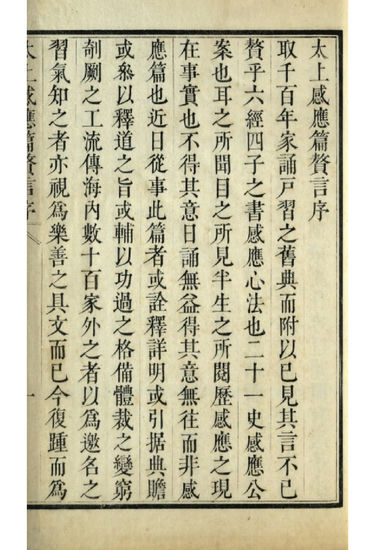 太上感應篇贅言序
取千百年家誦戸習之舊典而附以已見其言不已
贅乎六經四子之書感應心法也二十一史感應公
案也耳之所聞目之所見半生之所閱歷感應之現
在事實也不得其意日誦無益得其意無徃而非感
應篇也近日從事此篇者或詮釋詳明或引据典贍
或叅以釋道之旨或輔以功過之格備體裁之變窮
剞劂之工流傳海内數十百家外之者以爲邀名之
習氣知之者亦視爲樂善之具文而已今復踵而爲
太上感應篇贅言序 一